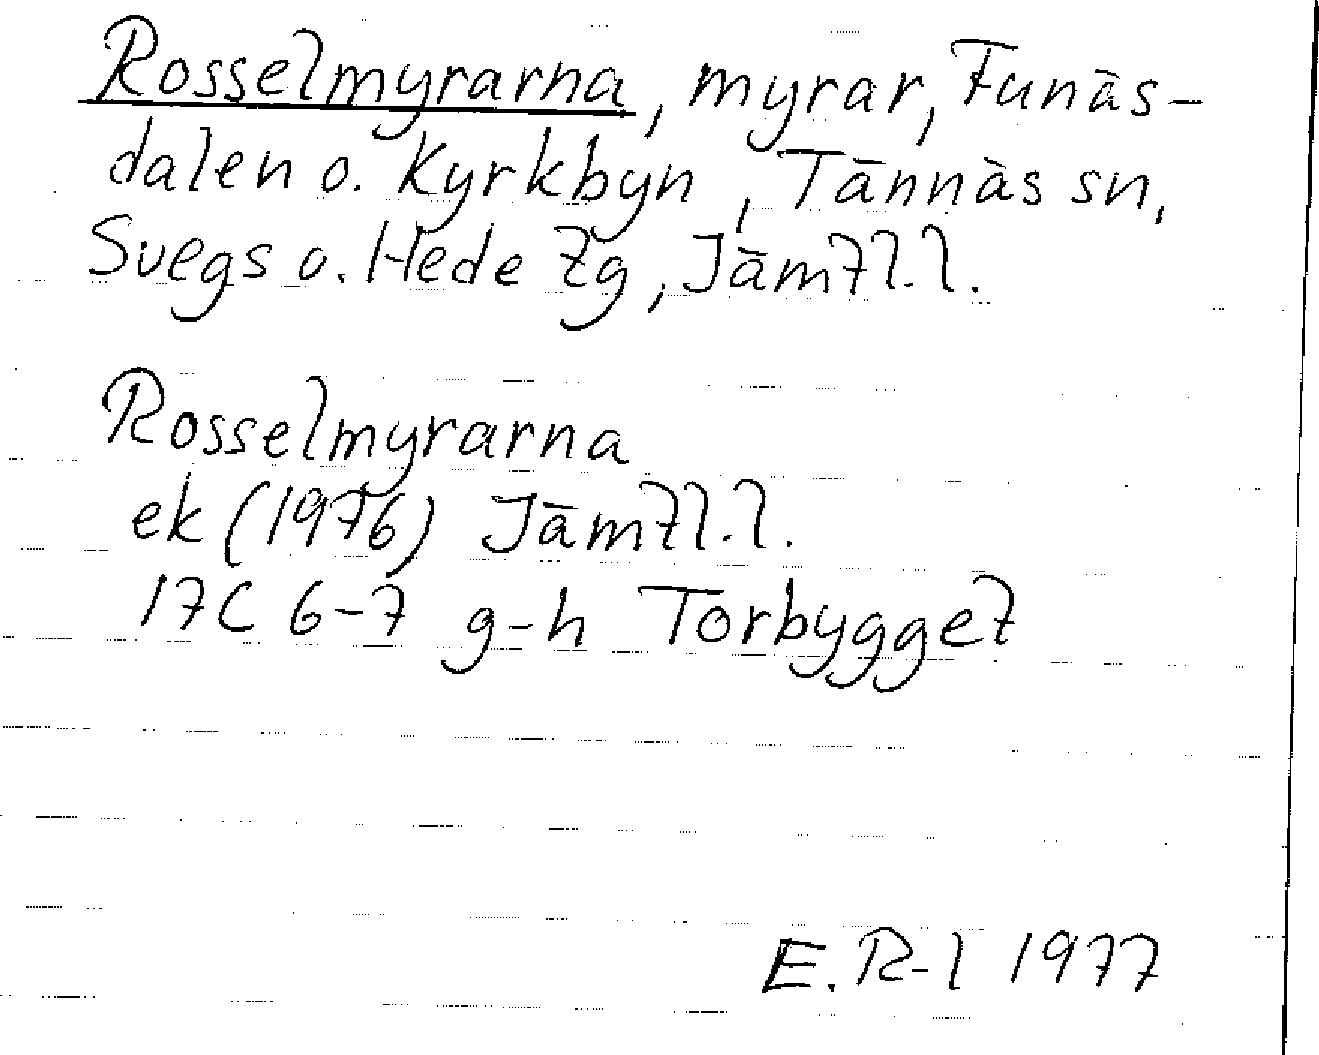 Rosselmyrarna, myrar, Funäs-
dalen o. Kyrkbyn, Tännäs sn,
Svegs o. Hede tg, Jämtl.l.
Rosselmyrarna
ek (1976) Jämtl.l.
17C 6-7 g-h Torbygget
E. R-l 1977